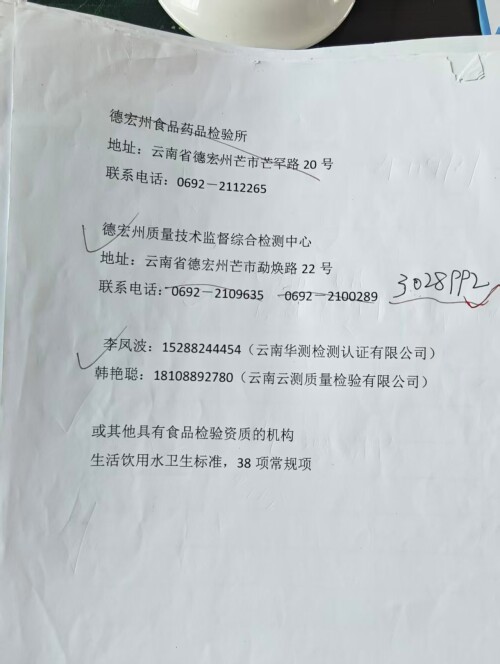 德宏州食品药品检验所
地址：云南省德宏州芒市芒罕路 20 号
联系电话：0692－2112265
德宏州质量技术监督综合检测中心
地址：云南省德宏州芒市勐焕路 22 号
联系电话：0692－2109635 0692－2100289 3028992
李凤波：15288244454（云南华测检测认证有限公司）
韩艳聪：18108892780（云南云测质量检验有限公司）
或其他具有食品检验资质的机构
生活饮用水卫生标准，38 项常规项